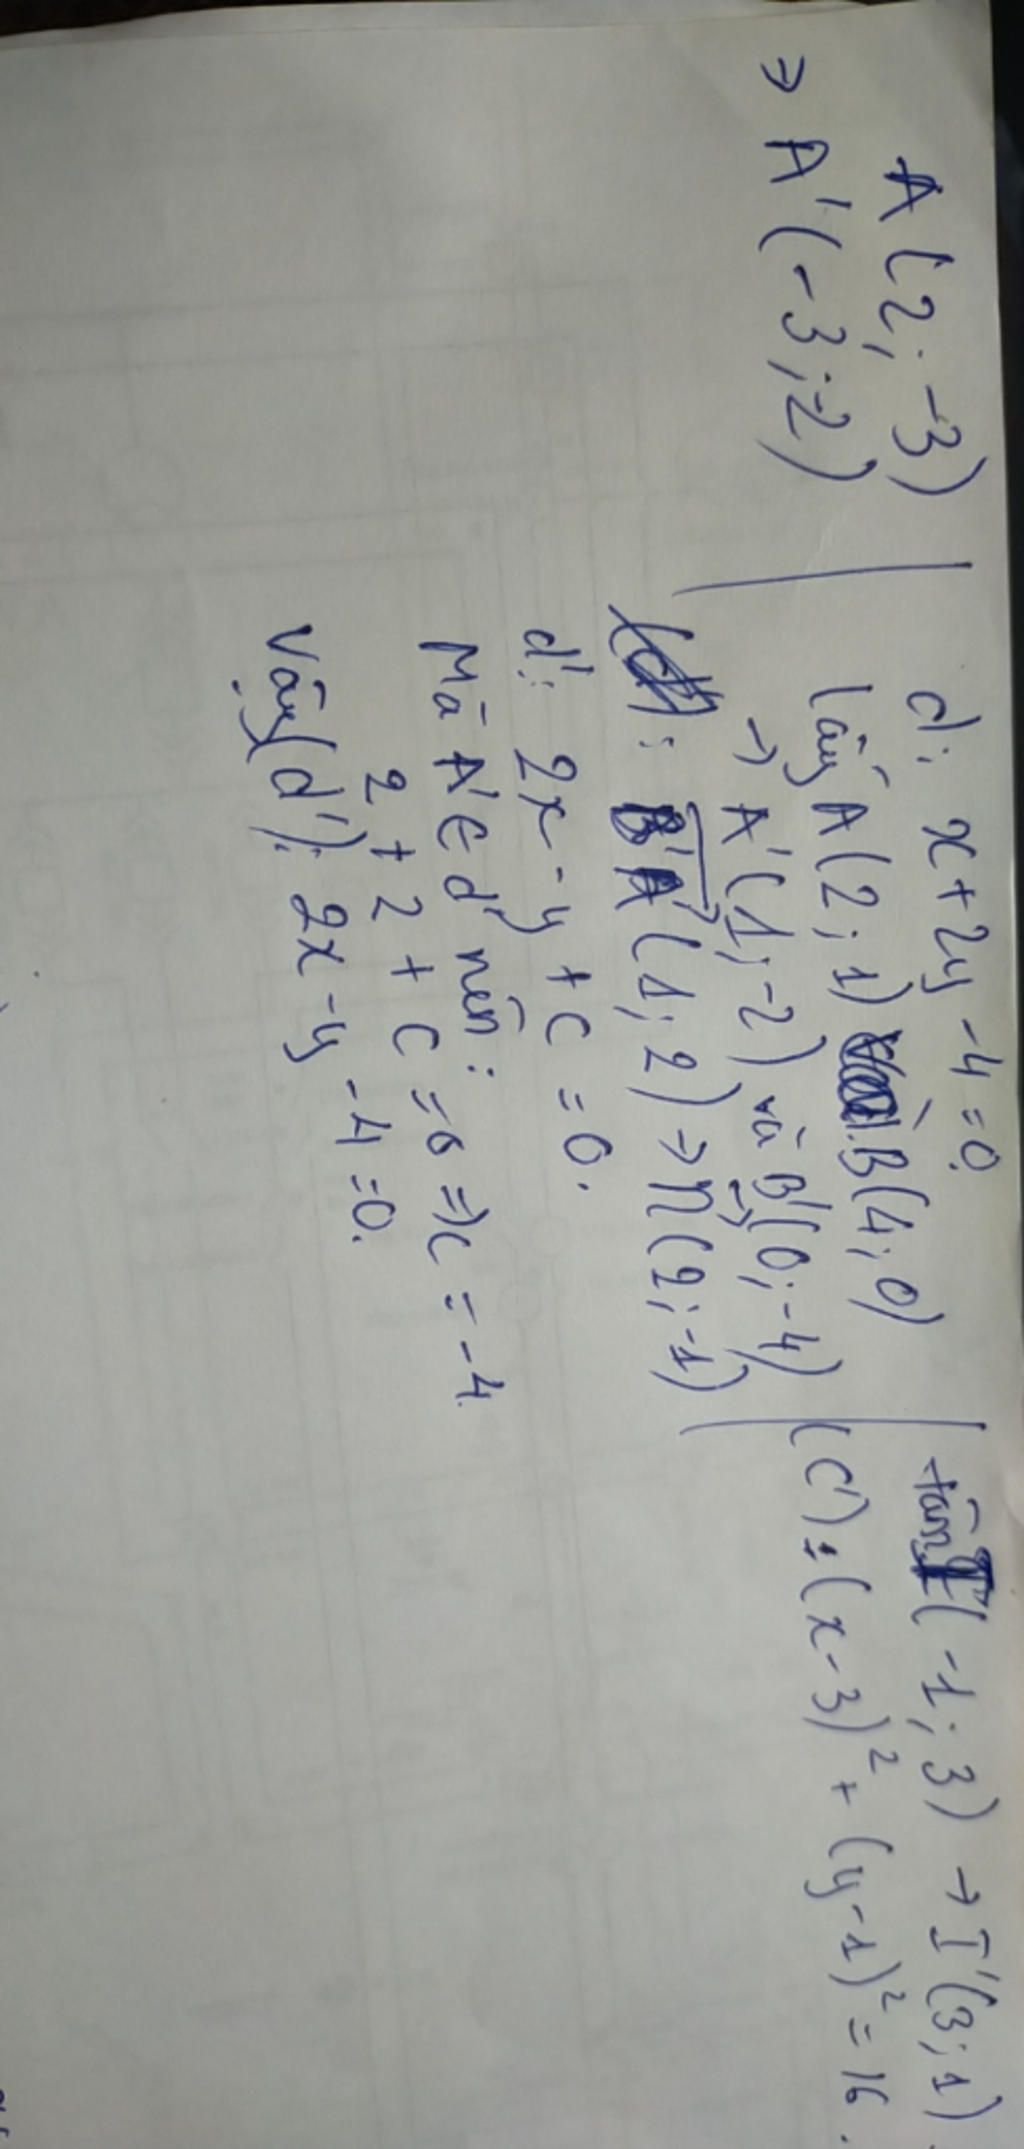 A(2; -3)
→ A'(-3; -2)
d: x + 2y - 4 = 0.
Lấy A(2; 1) B(4; 0)
→ A'(1; -2) và B'(0; -4)
B'A'(1; 2) → n(2; -1)
d': 2x - y + c = 0.
Mà A' ∈ d' nên:
2 + 2 + c = 0 => c = -4.
Vậy (d'): 2x - y - 4 = 0.
tâm I(-1; 3) → I'(3; 1).
(C'): (x - 3)² + (y - 1)² = 16.